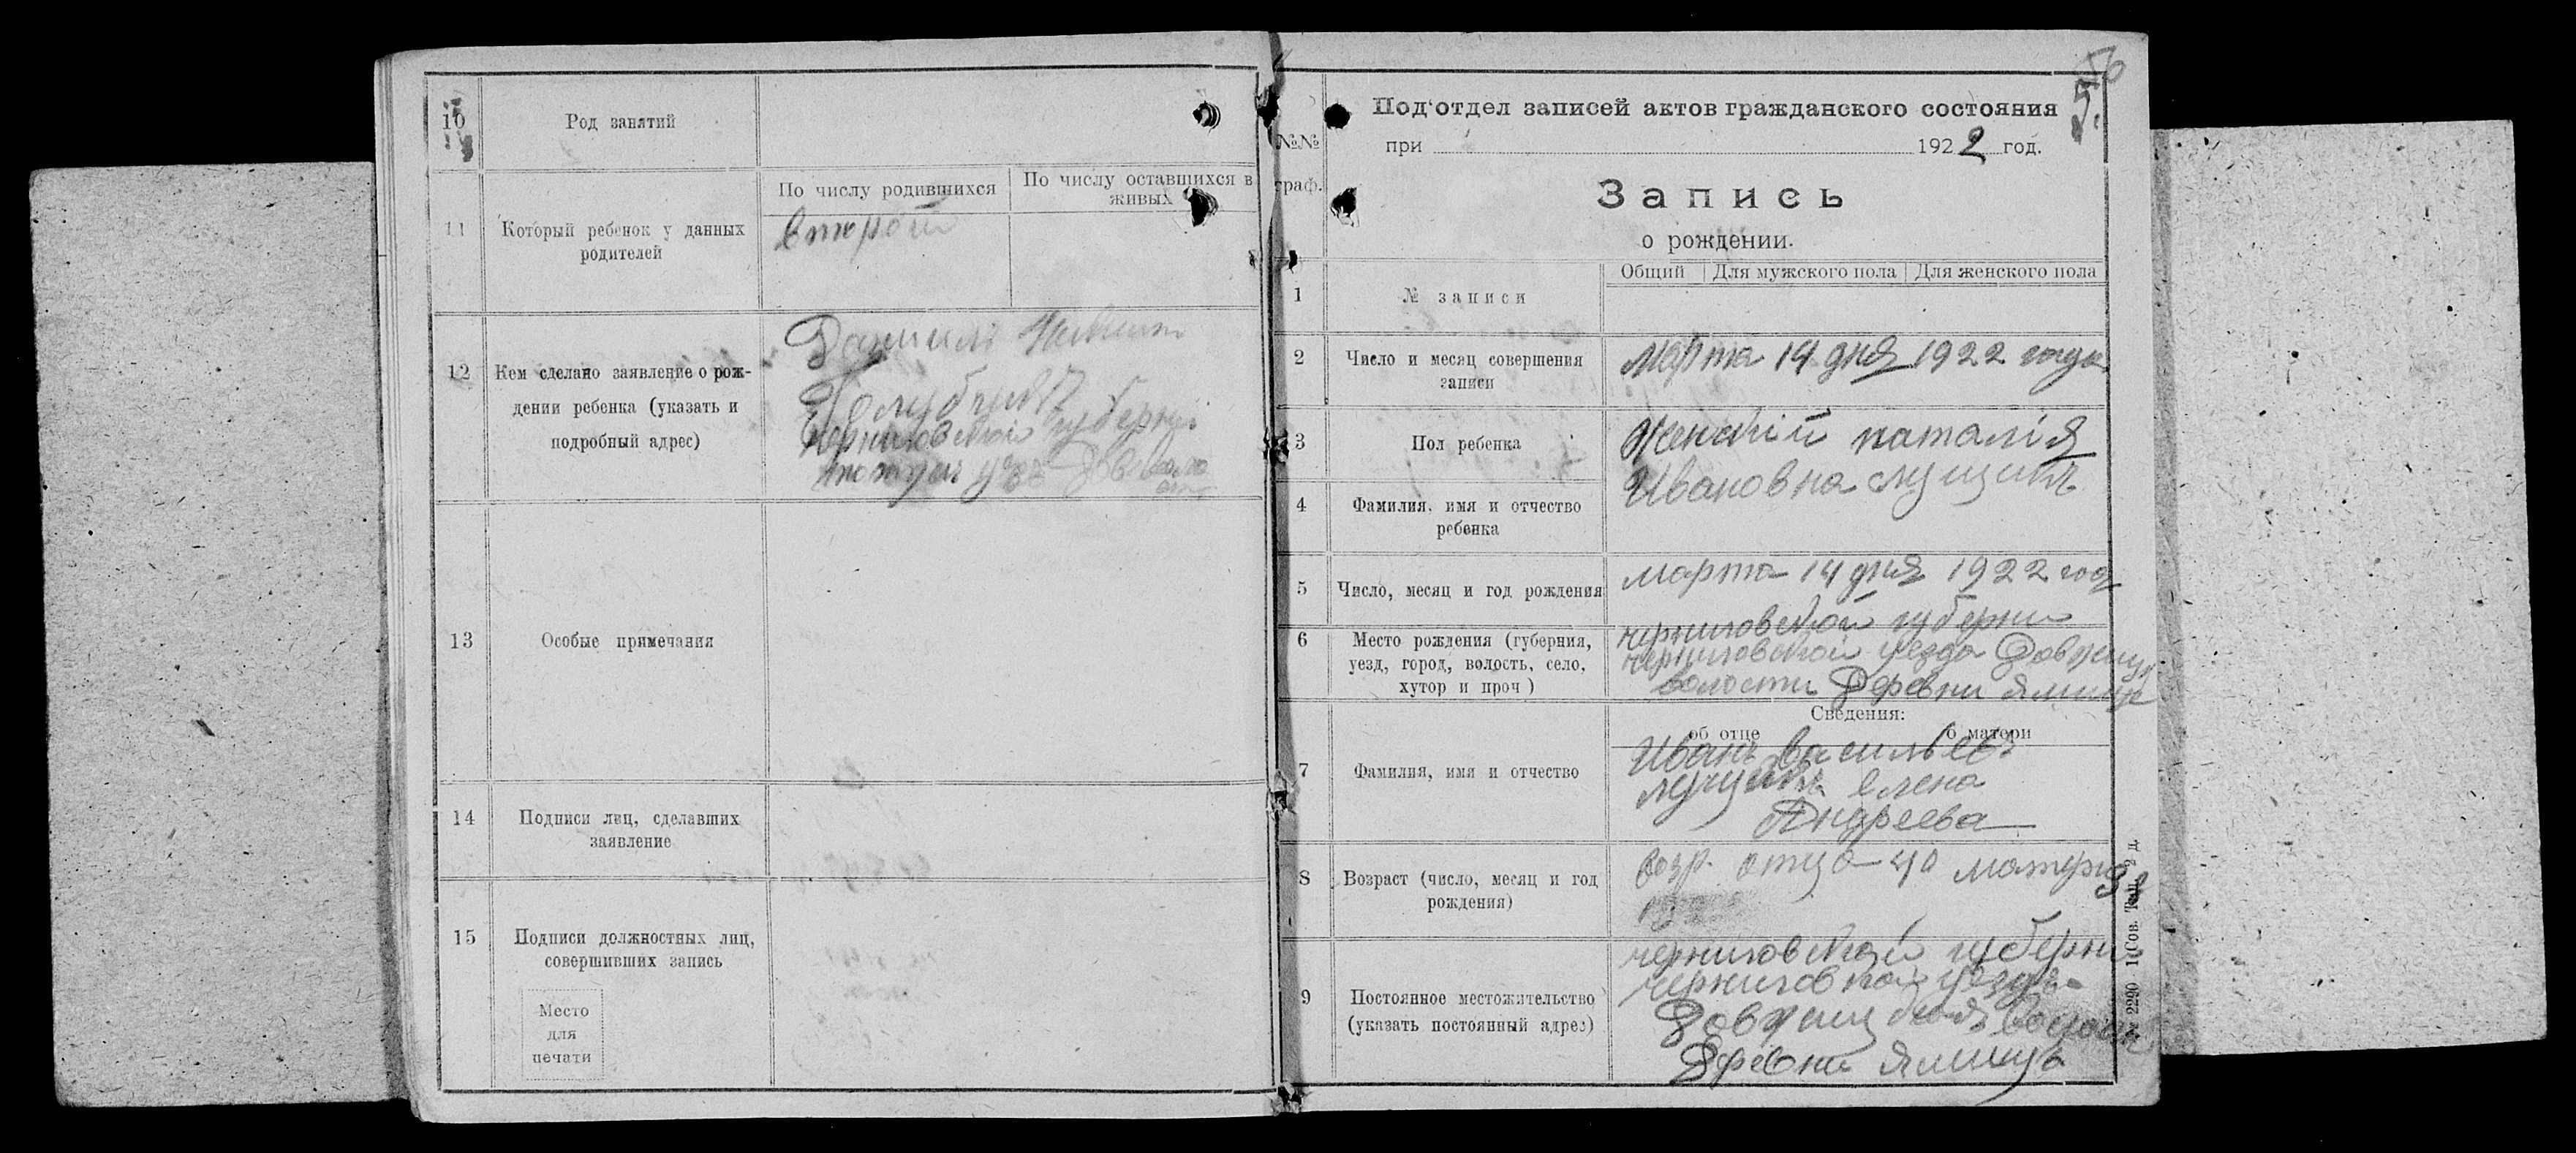 10
Род занятий
11
Который ребенок у данных
родителей
По числу родившихся
По числу оставшихся в
живых
второй
12
Кем сделано заявление о рож-
дении ребенка (указать и
подробный адрес)
черниговской губерни
13
Особые примечания
14
Подписи лиц, сделавших
заявление
15
Подписи должностных лиц,
совершивших запись
Место
для
печати
56
5.
№№
граф.
Под'отдел записей актов гражданского состояния
при 1922 год.
Запись
о рождении.
1
№ записи
Общий
Для мужского пола
Для женского пола
2
Число и месяц совершения
записи
Марта 14 дня 1922 года
3
Пол ребенка
Женский наталія
4
Фамилия, имя и отчество
ребенка
Ивановна лущикъ
5
Число, месяц и год рождения
марта 14 дня 1922 год
6
Место рождения (губерния,
уезд, город, волость, село,
хутор и проч )
черниговской губерни
черниговской уезда Довжиц
волости Деревни Ямища
Сведения:
об отце
о матери
7
Фамилия, имя и отчество
Иванъ васильев
лущикъ елена
Андреева
8
Возраст (число, месяц и год
рождения)
возр. отца 40 матери 38
9
Постоянное местожительство
(указать постоянный адрес)
черниговской губерни
черниговской уезда
Деревни Ямища
№ 2290 1 Сов. Тип. 2 д.